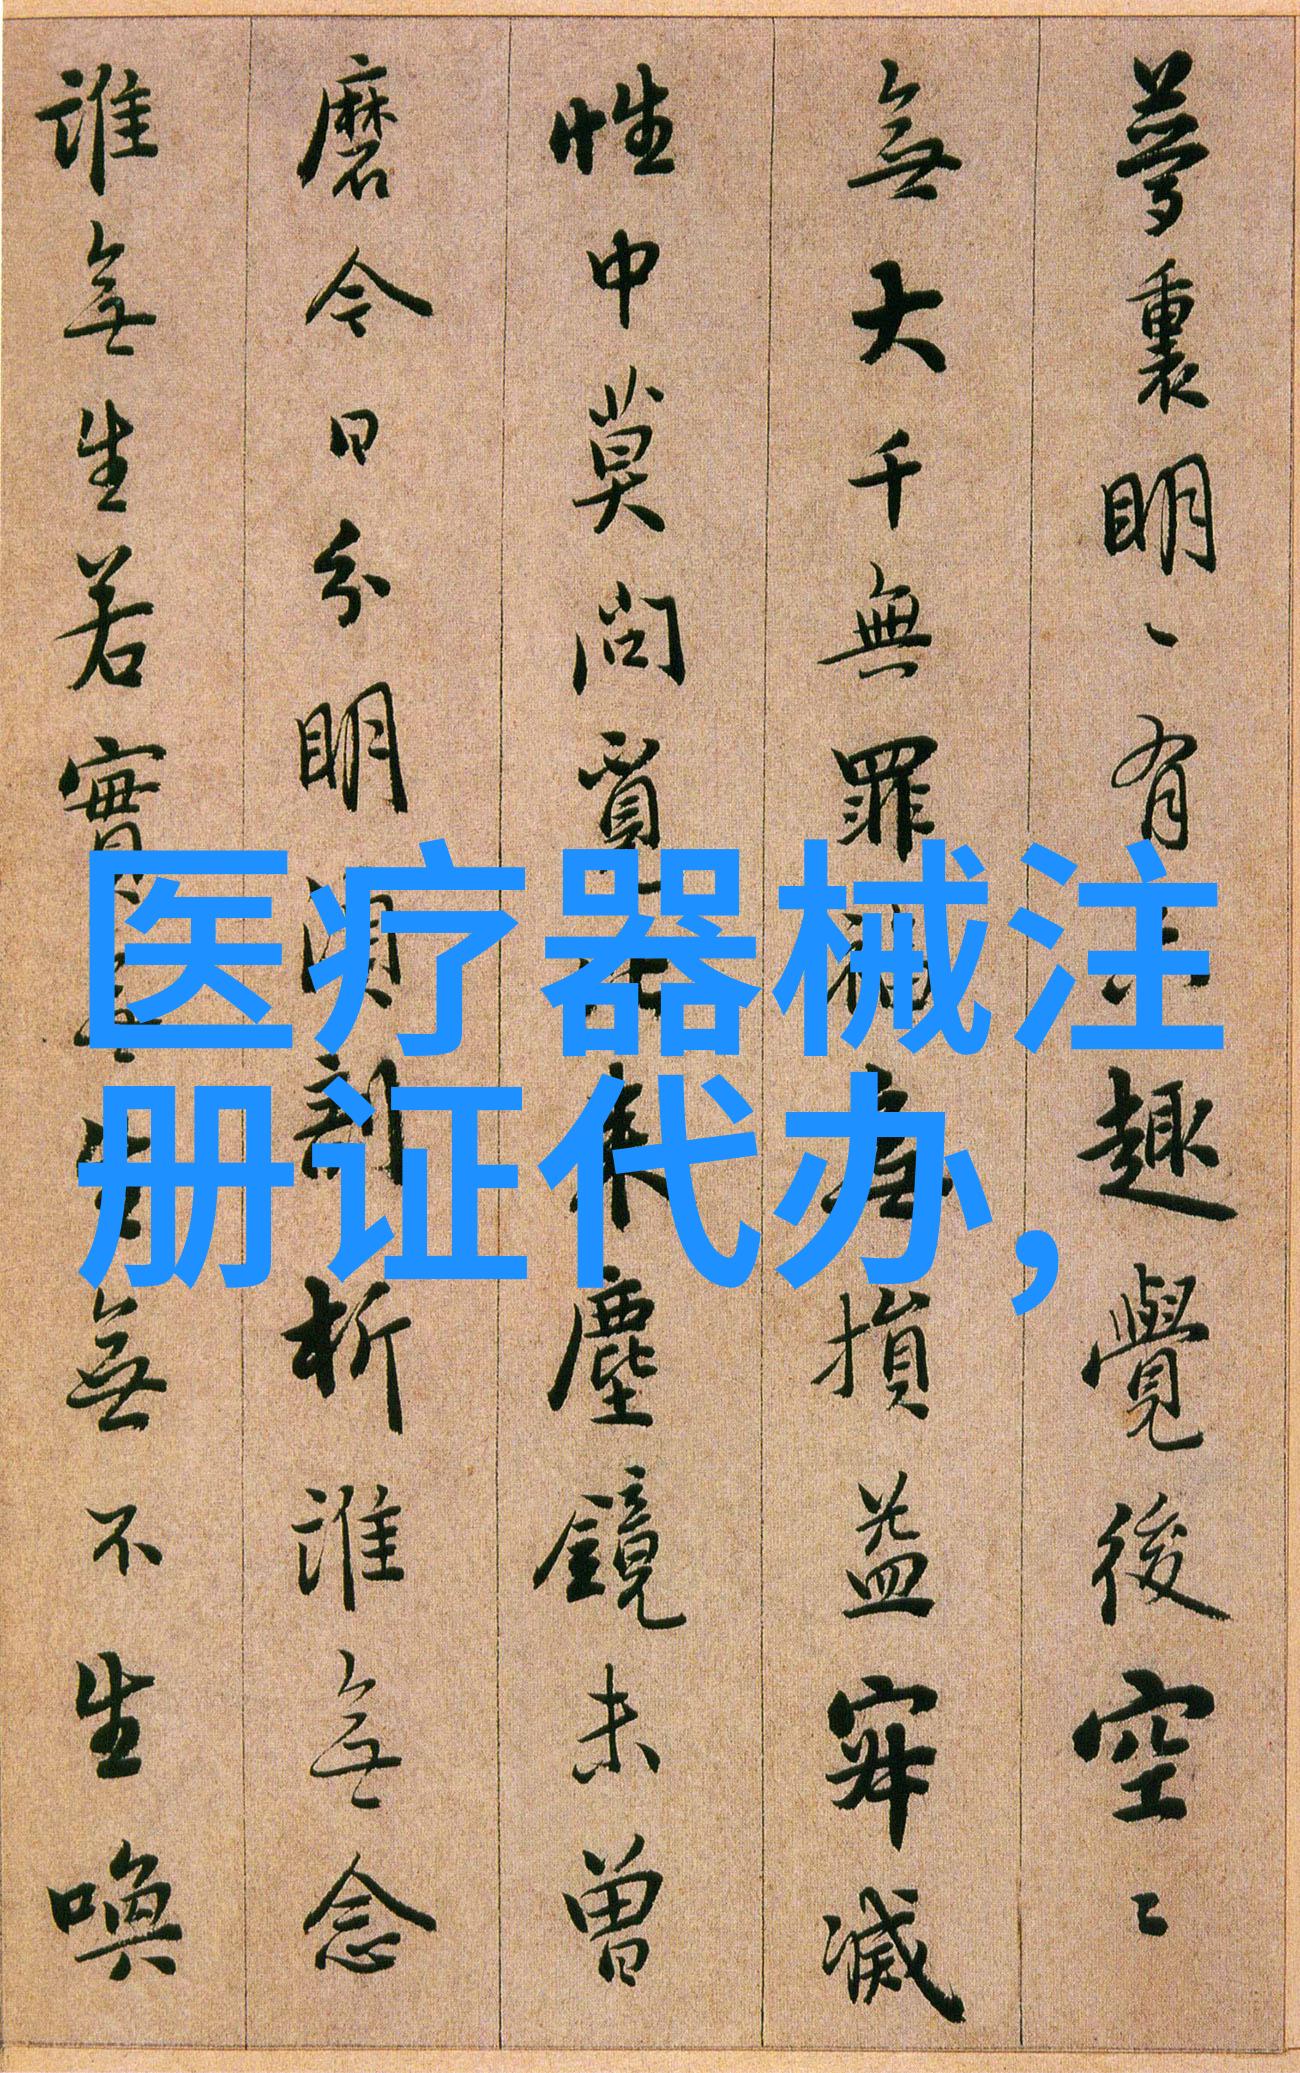 夢裏明〻有六趣覺後空〻
無大千無罪福無損益寂滅
性中莫問覓比來塵鏡未曾
磨今日分明須剖析誰無念
誰無生若實無生無不生喚
医疗器械注
册证代办,